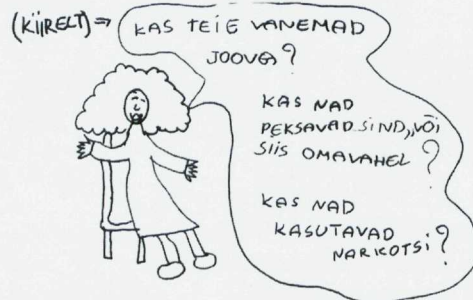 (KIIRELT) ⇒ KAS TEIE VANEMAD
JOOVA?
KAS NAD
PEKSAVAD SIND,, VÕI
SIIS OMAVAHEL?
KAS NAD
KASUTAVAD
NARKOTSI?